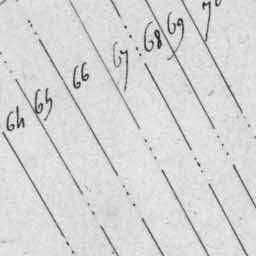 64
65
66
67
68
69